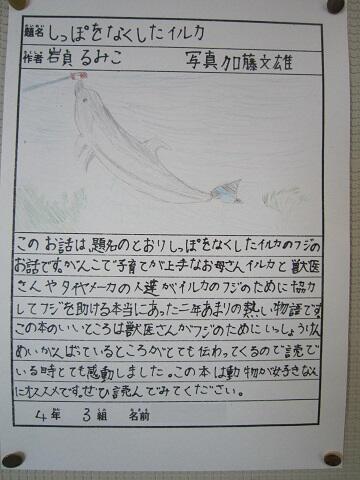 題名 しっぽをなくしたイルカ
作者 岩貞 るみこ 写真 加藤文雄
このお話は、題名のとおりしっぽをなくしたイルカのフジの
お話です。がんこで子育てが上手なお母さんイルカと獣医
さんやタイヤメーカの人達がイルカのフジのために協力
してフジを助ける本当にあった二年あまりの熱い物語です。
この本のいいところは獣医さんがフジのためにいっしょうけん
めいがんばっているところがとても伝わってくるので読んで
いる時とても感動しました。この本は動物が好きな人
にオススメです。ぜひ読んでみてください。
4年 3組 名前